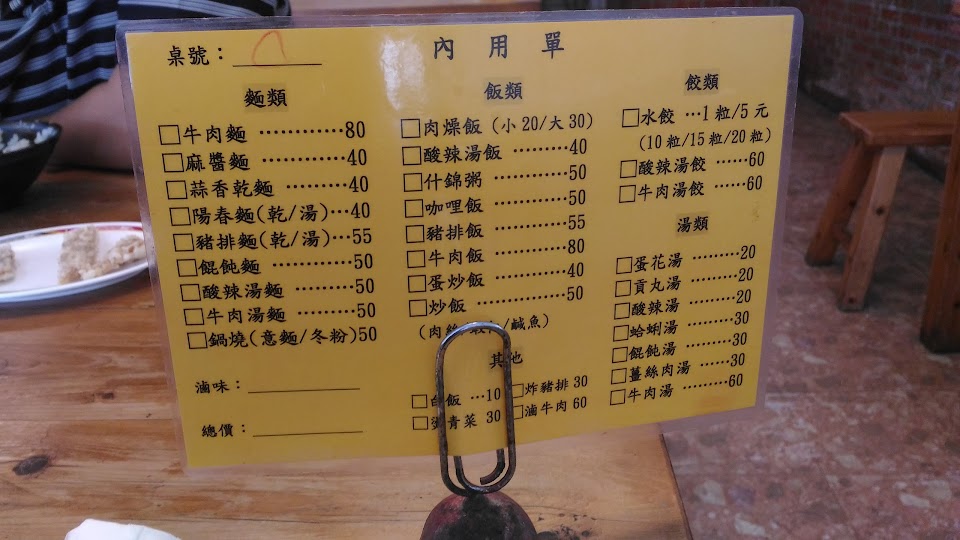 內用單
桌號：
麵類
□牛肉麵 …………80
□麻醬麵 …………40
□蒜香乾麵 ………40
□陽春麵(乾/湯)…40
□豬排麵(乾/湯)…55
□餛飩麵 …………50
□酸辣湯麵 ………50
□牛肉湯麵 ………50
□鍋燒(意麵/冬粉)50
滷味：
總價：
飯類
□肉燥飯 (小20/大30)
□酸辣湯飯 ………40
□什錦粥 …………50
□咖哩飯 …………50
□豬排飯 …………55
□牛肉飯 …………80
□蛋炒飯 …………40
□炒飯 ……………50
(肉絲/ /鹹魚)
其他
□白飯 …10
□ 青菜 30
□炸豬排 30
□滷牛肉 60
餃類
□水餃 …1粒/5元
(10粒/15粒/20粒)
□酸辣湯餃 ……60
□牛肉湯餃 ……60
湯類
□蛋花湯 ………20
□貢丸湯 ………20
□酸辣湯 ………20
□蛤蜊湯 ………30
□餛飩湯 ………30
□薑絲肉湯 ……30
□牛肉湯 ………60